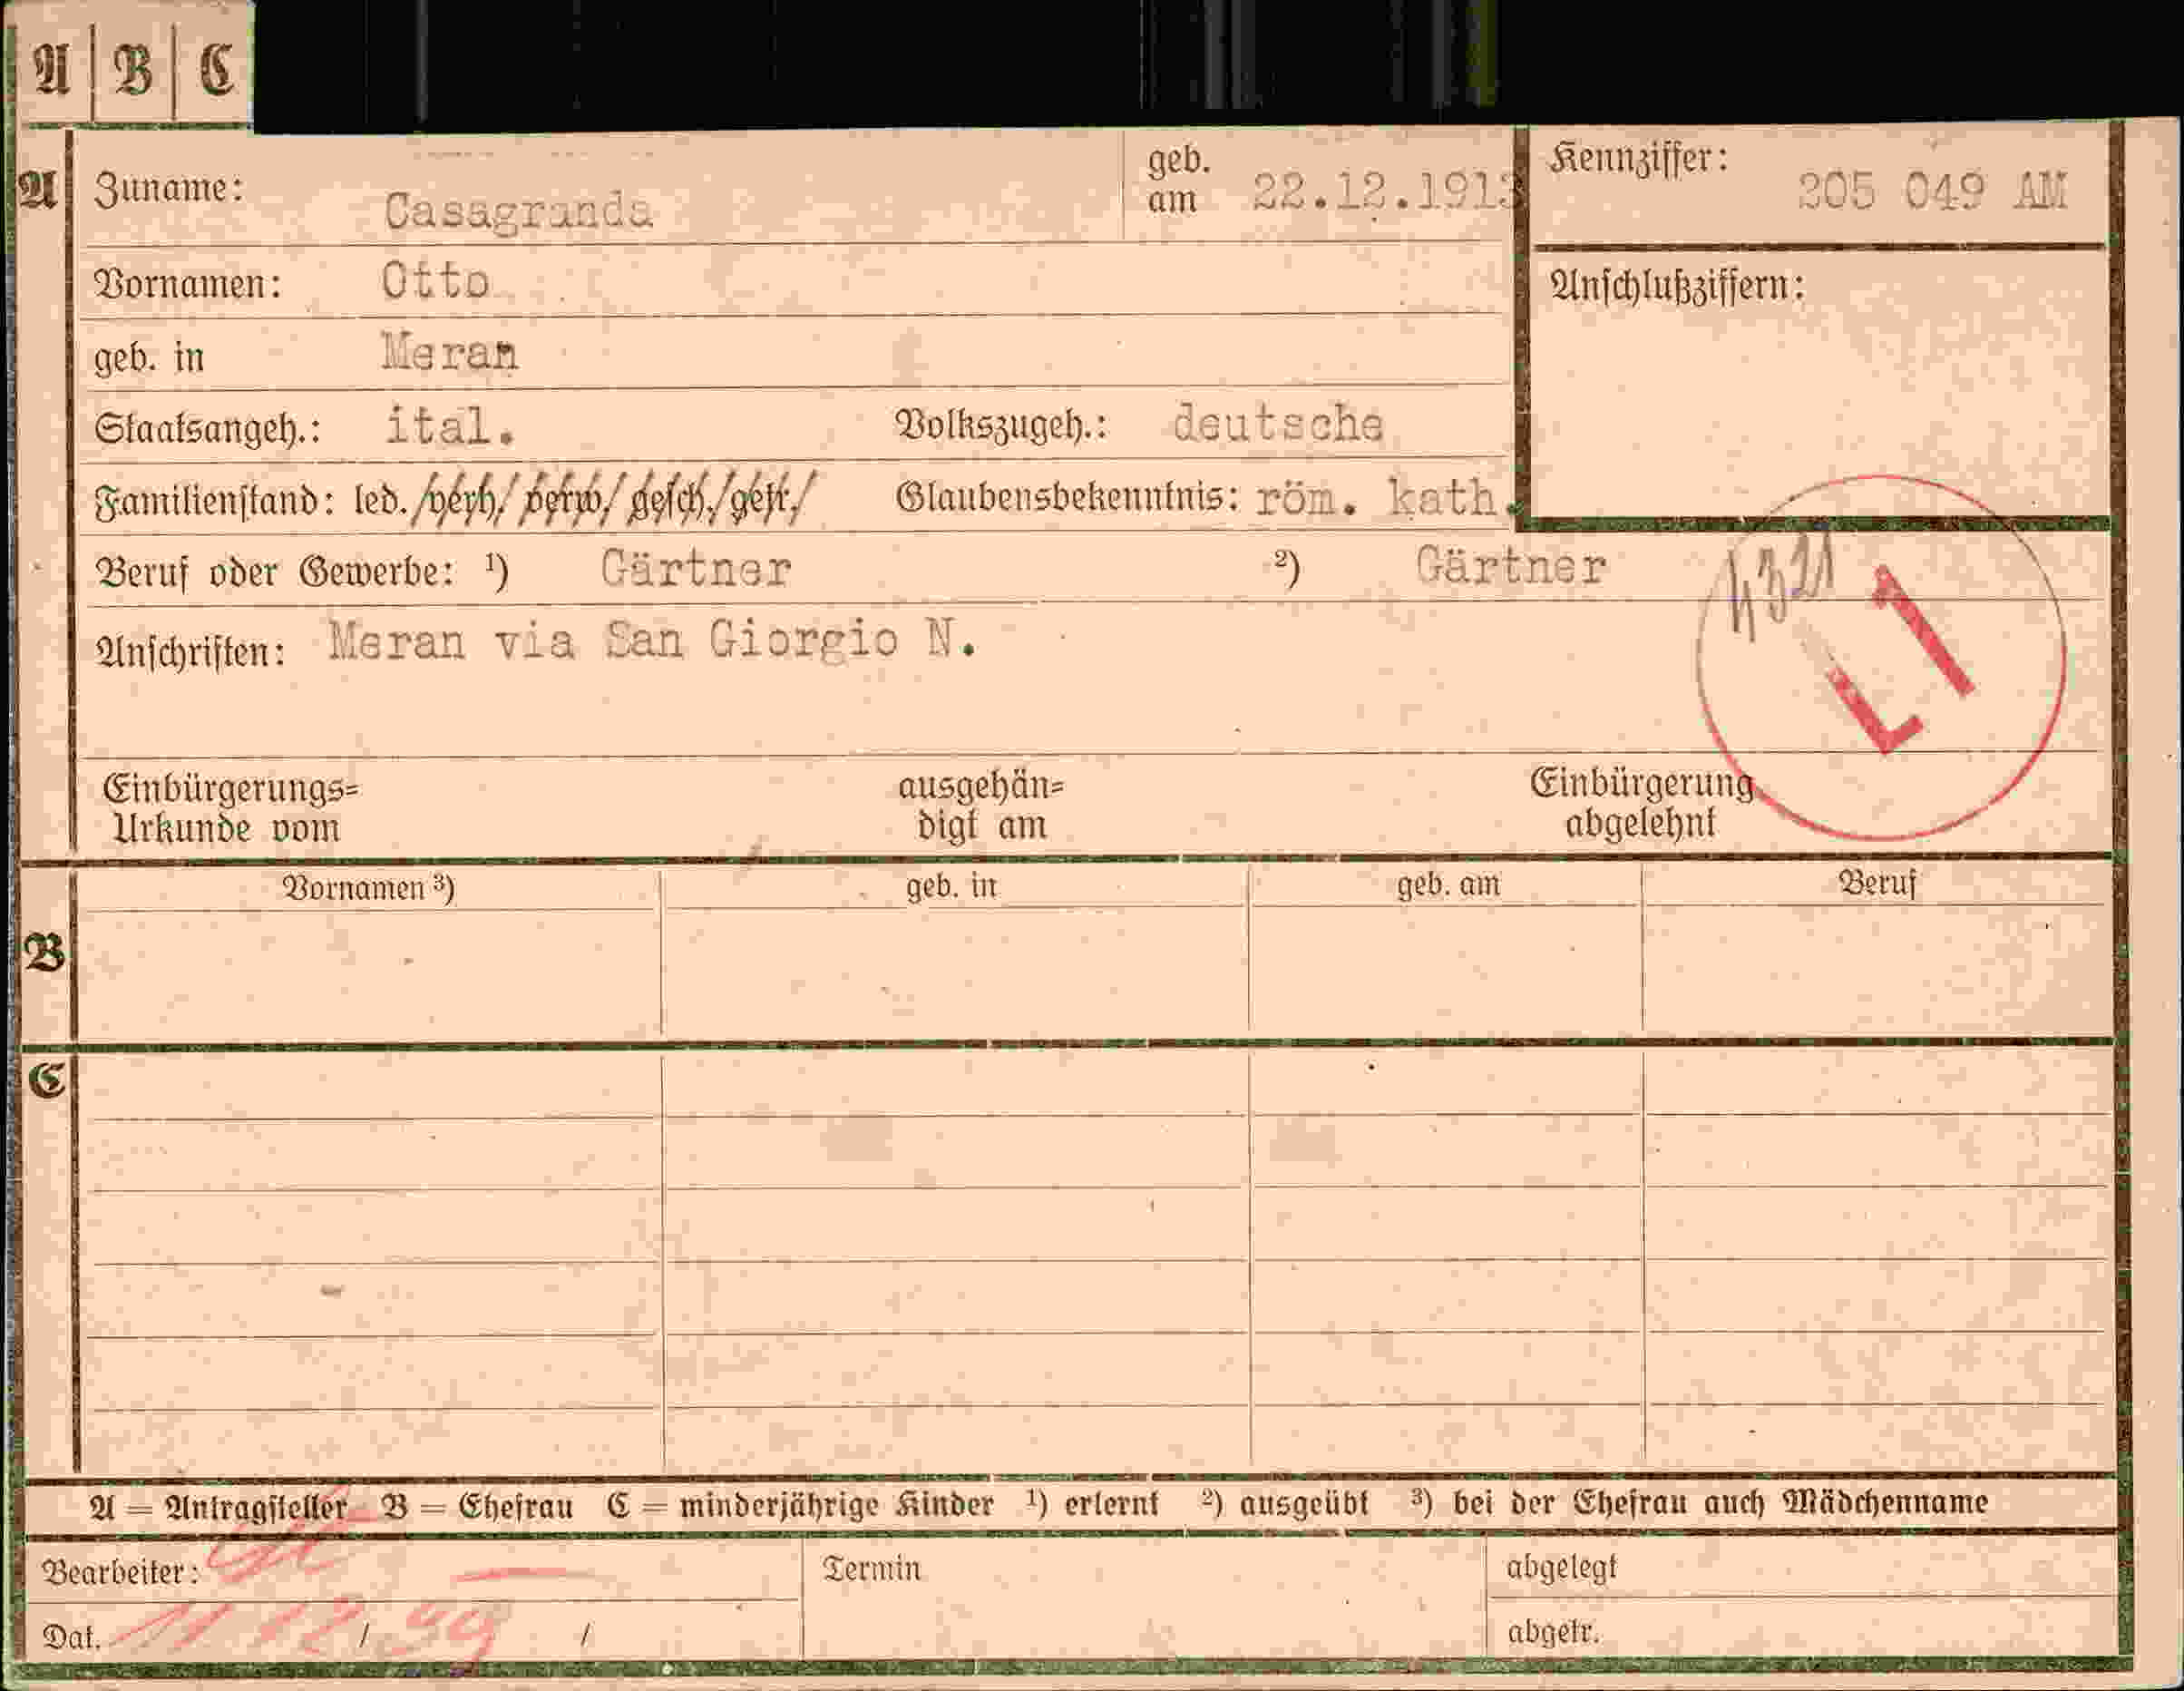 A B C
A Zuname: Casagranda geb. am 22.12.1913 Kennziffer: 205 049 AM
Vornamen: Otto Anschlußziffern:
geb. in Meran
Staatsangeh.: ital. Volkszugeh.: deutsche
Familienstand: led./verh/ verw/ gesch./getr./ Glaubensbekenntnis: röm. kath.
Beruf oder Gewerbe: ¹) Gärtner ²) Gärtner
4321
Anschriften: Meran via San Giorgio N.
L 1
Einbürgerungs= ausgehän= Einbürgerung
Urkunde vom digt am abgelehnt
Vornamen ³) geb. in geb. am Beruf
B
C
A = Antragsteller B = Ehefrau C = minderjährige Kinder ¹) erlernt ²) ausgeübt ³) bei der Ehefrau auch Mädchenname
Bearbeiter: Termin abgelegt
Dat. 11 12 / 39 / abgetr.